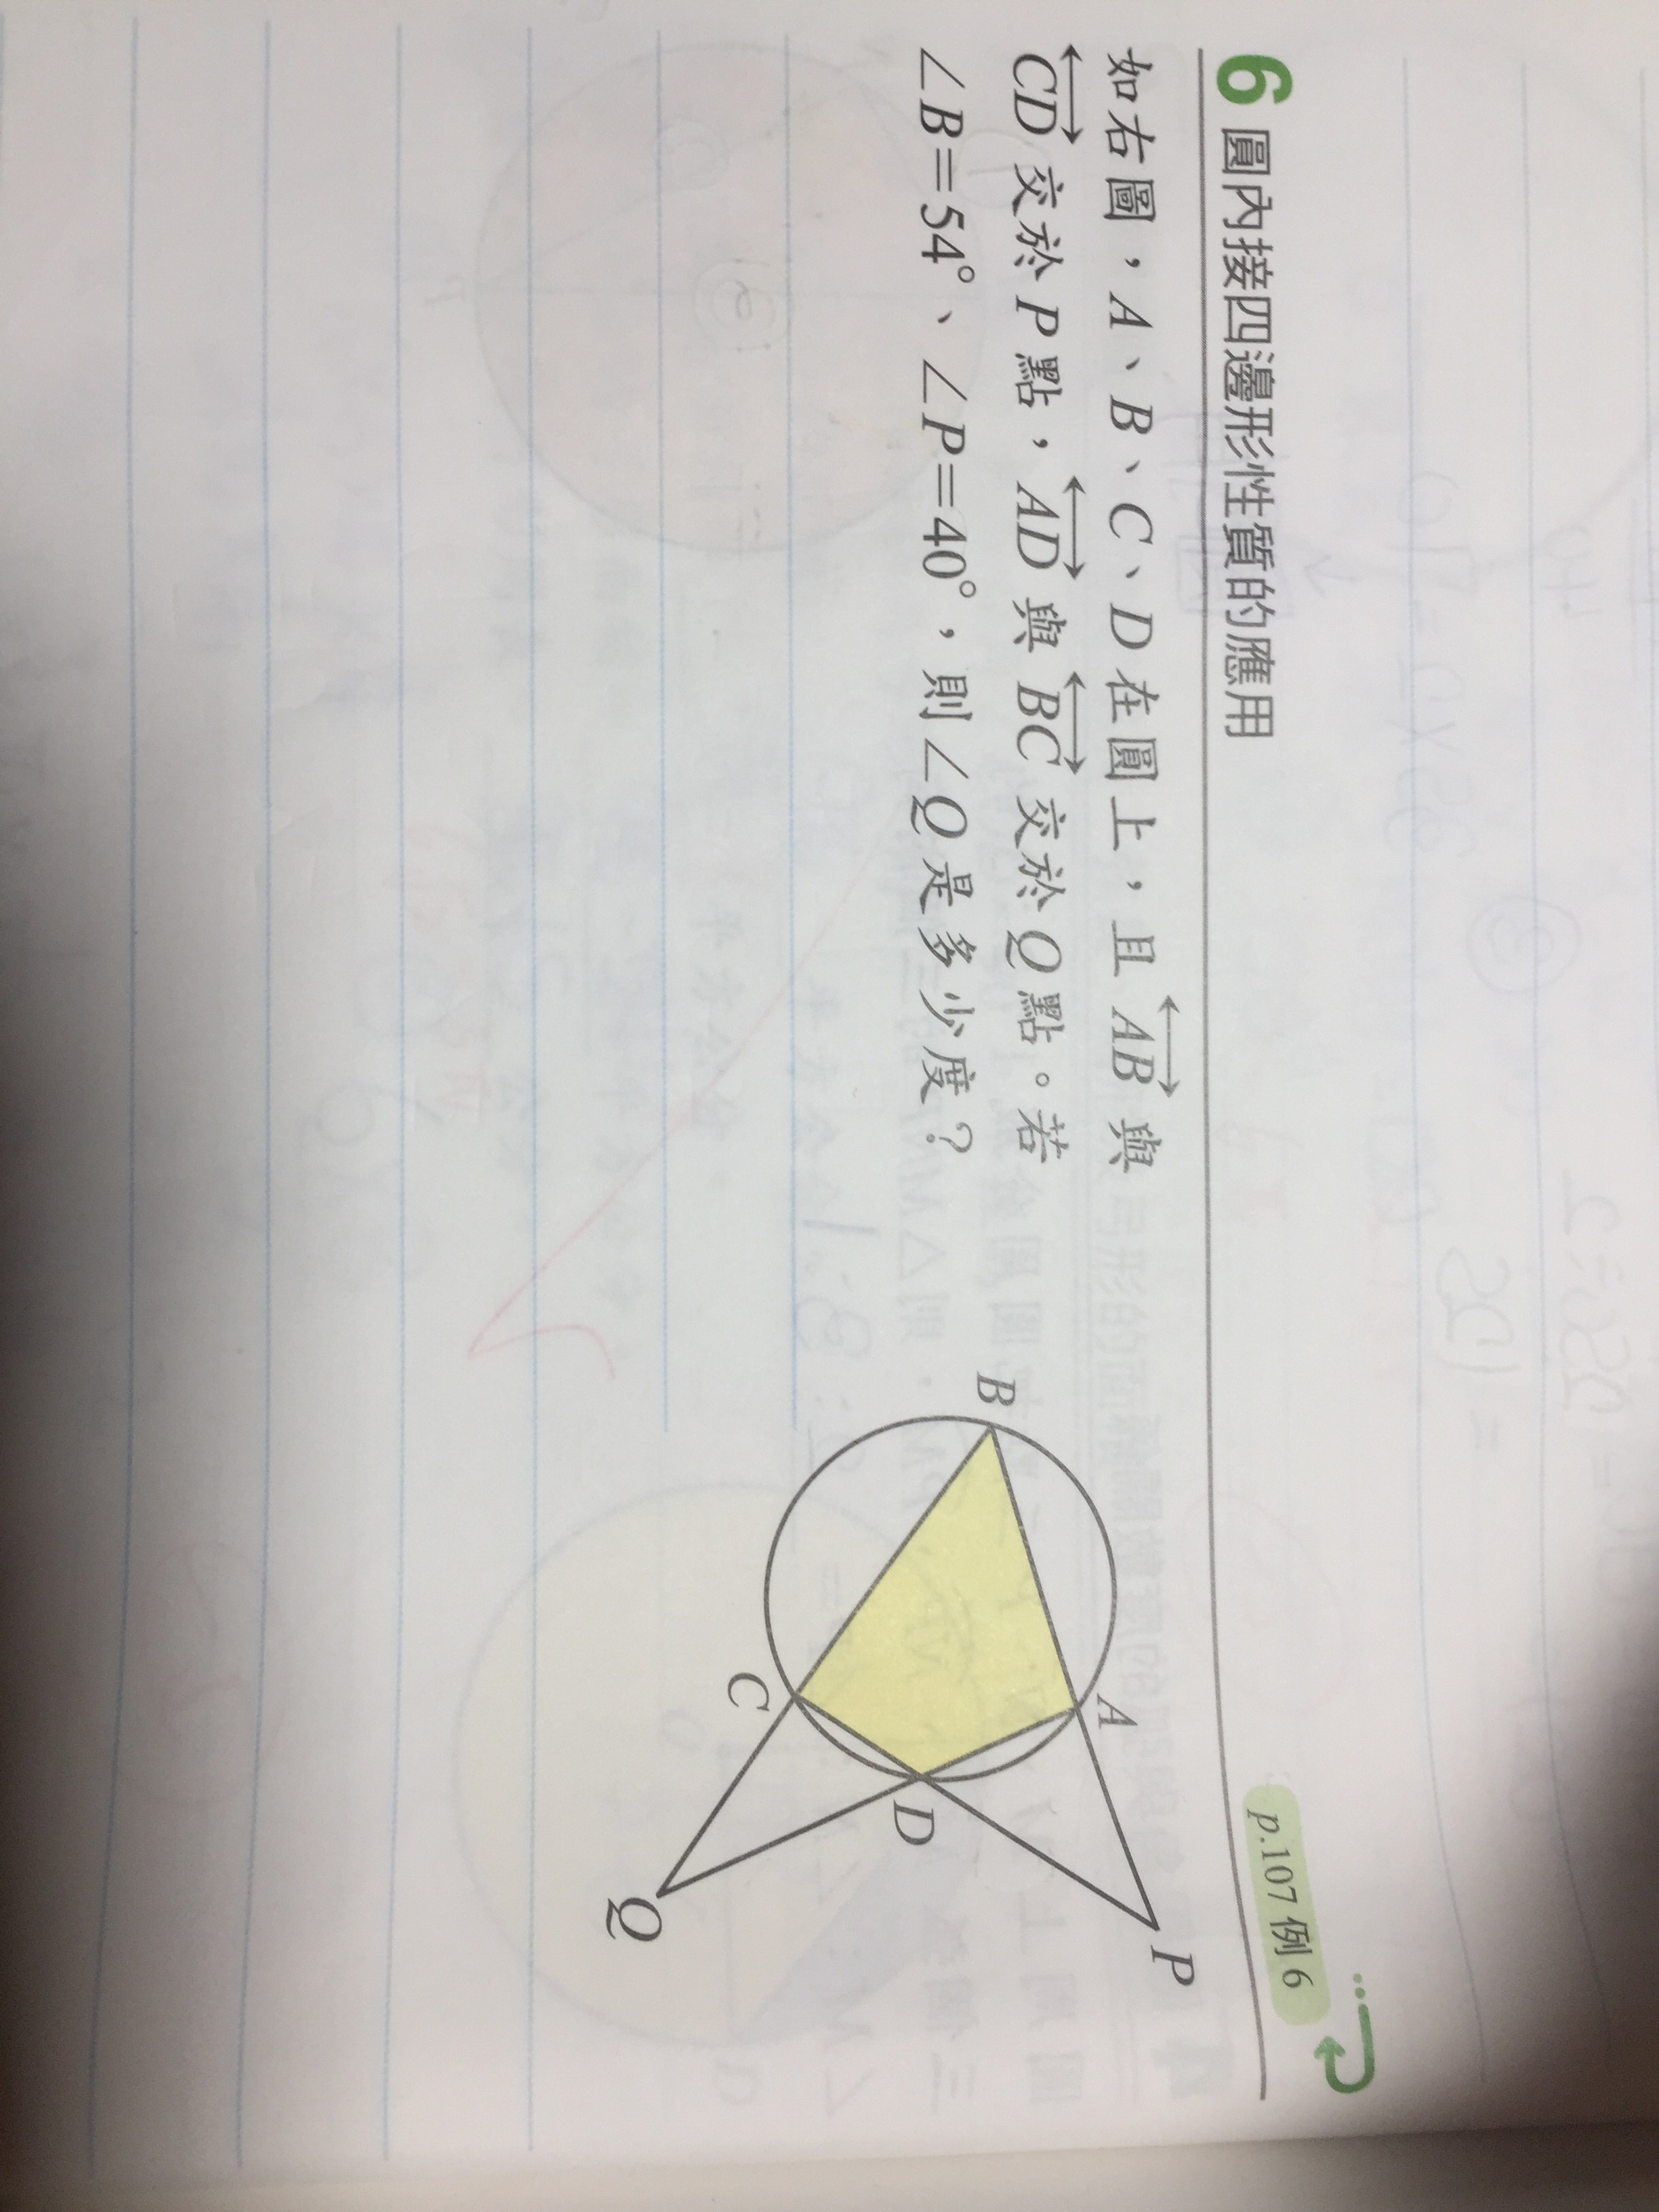 6 圓內接四邊形性質的應用
p.107 例 6
如右圖，A、B、C、D在圓上，且 AB 與
CD 交於P點，AD 與 BC 交於Q點。若
∠B=54°、∠P=40°，則∠Q是多少度？
P
A
B
D
C
Q